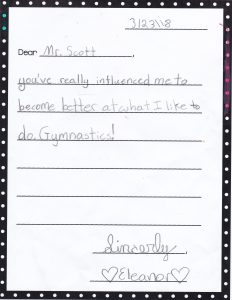 3/23/18
Dear Mr. Scott,
you've really influenced me to
become better at what I like to
do. Gymnastics!
Sincerly,
♡Eleanor♡